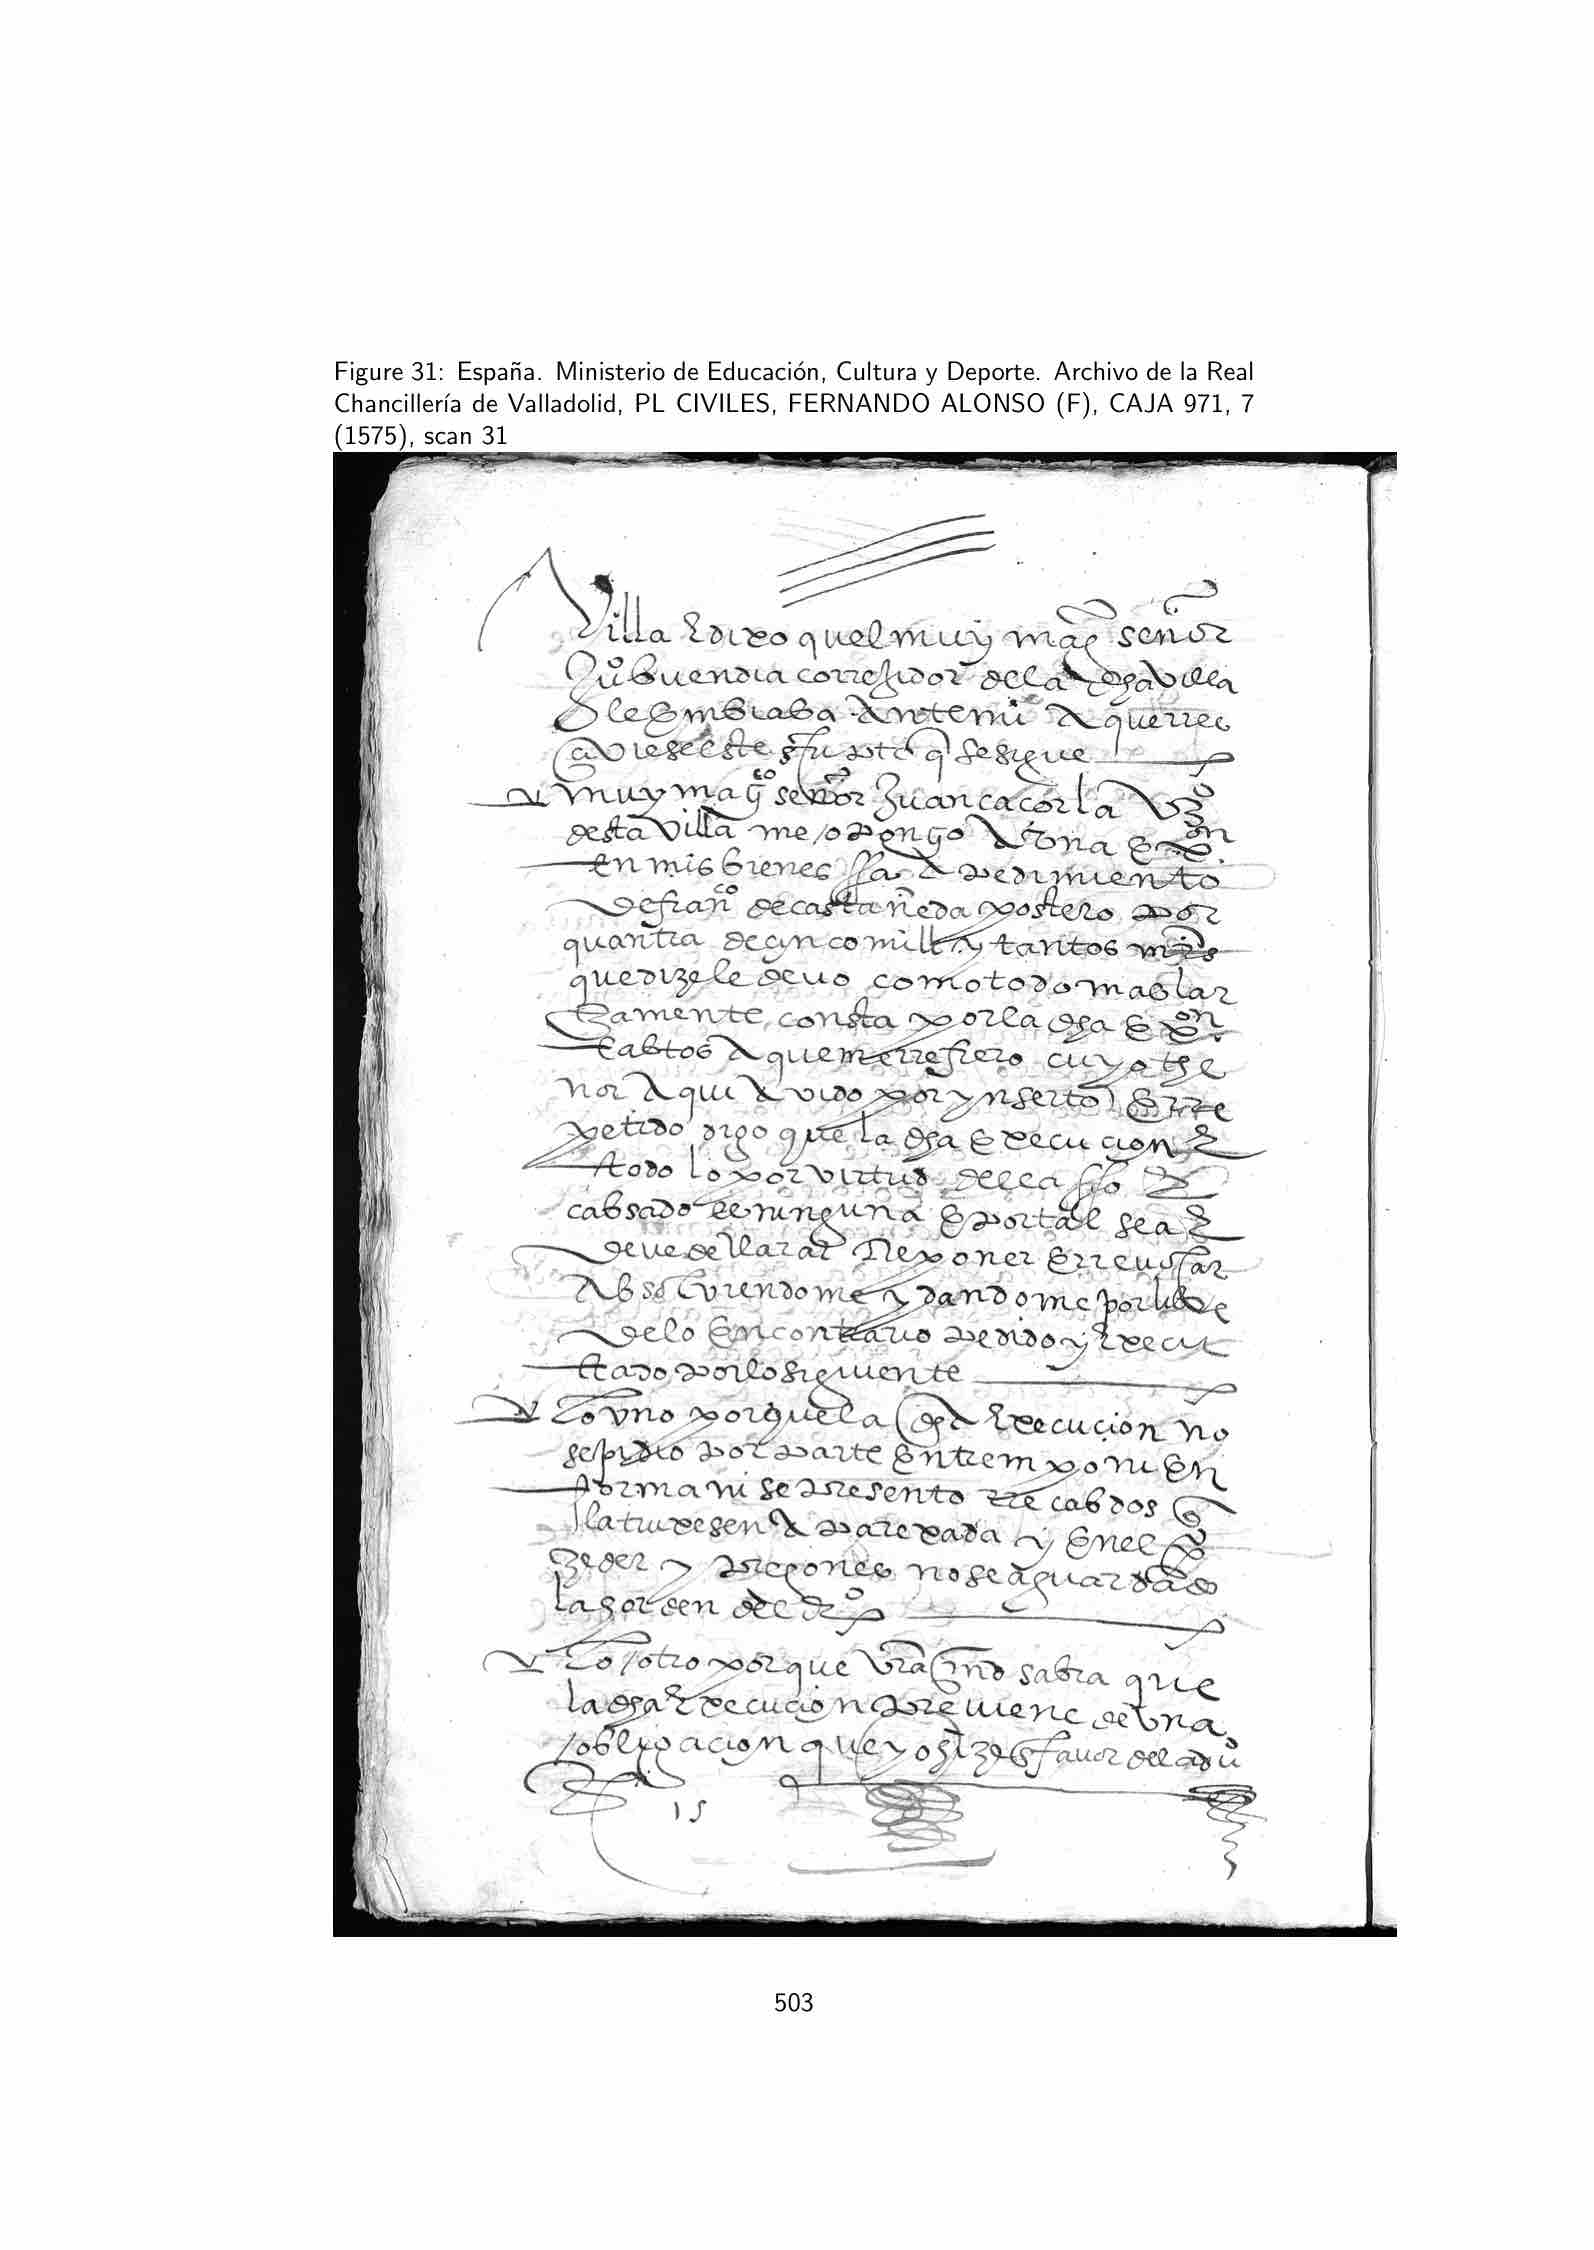 Figure 31: España. Ministerio de Educación, Cultura y Deporte. Archivo de la Real
Chancillería de Valladolid, PL CIVILES, FERNANDO ALONSO (F), CAJA 971, 7
(1575), scan 31
Villa E dixo quel muy mag señor
Juº buendia corregidor dela dha villa
le Enbiaba Ante mi A querrer
este q se sigue
muy magco señor Juan cacorla vzº
desta villa me opongo A Una Exon
En mis bienes ffa A pedimiento
de franco de castañeda postero por
quantia de cincomill y tantos mrs
que dize le devo como todo mas lar
gamente consta por la dha Exon
E abtos A que me rrefiero cuyo the
nor Aqui Avido por ynserto E rre
petido digo que la dha Execucion E
todo lo por virtud della ffo
cabsado es ninguna E por tal se a E
deve dellarar Reponer E rrevocar
Absolviendome y dandome por libre
delo En contrario pedido y Execu
tado por lo siguiente
Lo uno por que la dha Execucion no
se pidio por parte En tiempo ni En
forma ni se presento rrecabdos q
la truxesen Aparexada y En el
zeder y pregones no se a guardado
la horden del drº
Lo otro por que vra md sabra que
la dha Execucion previene de una
obligacion que yo hize En favor del aduº
15
503